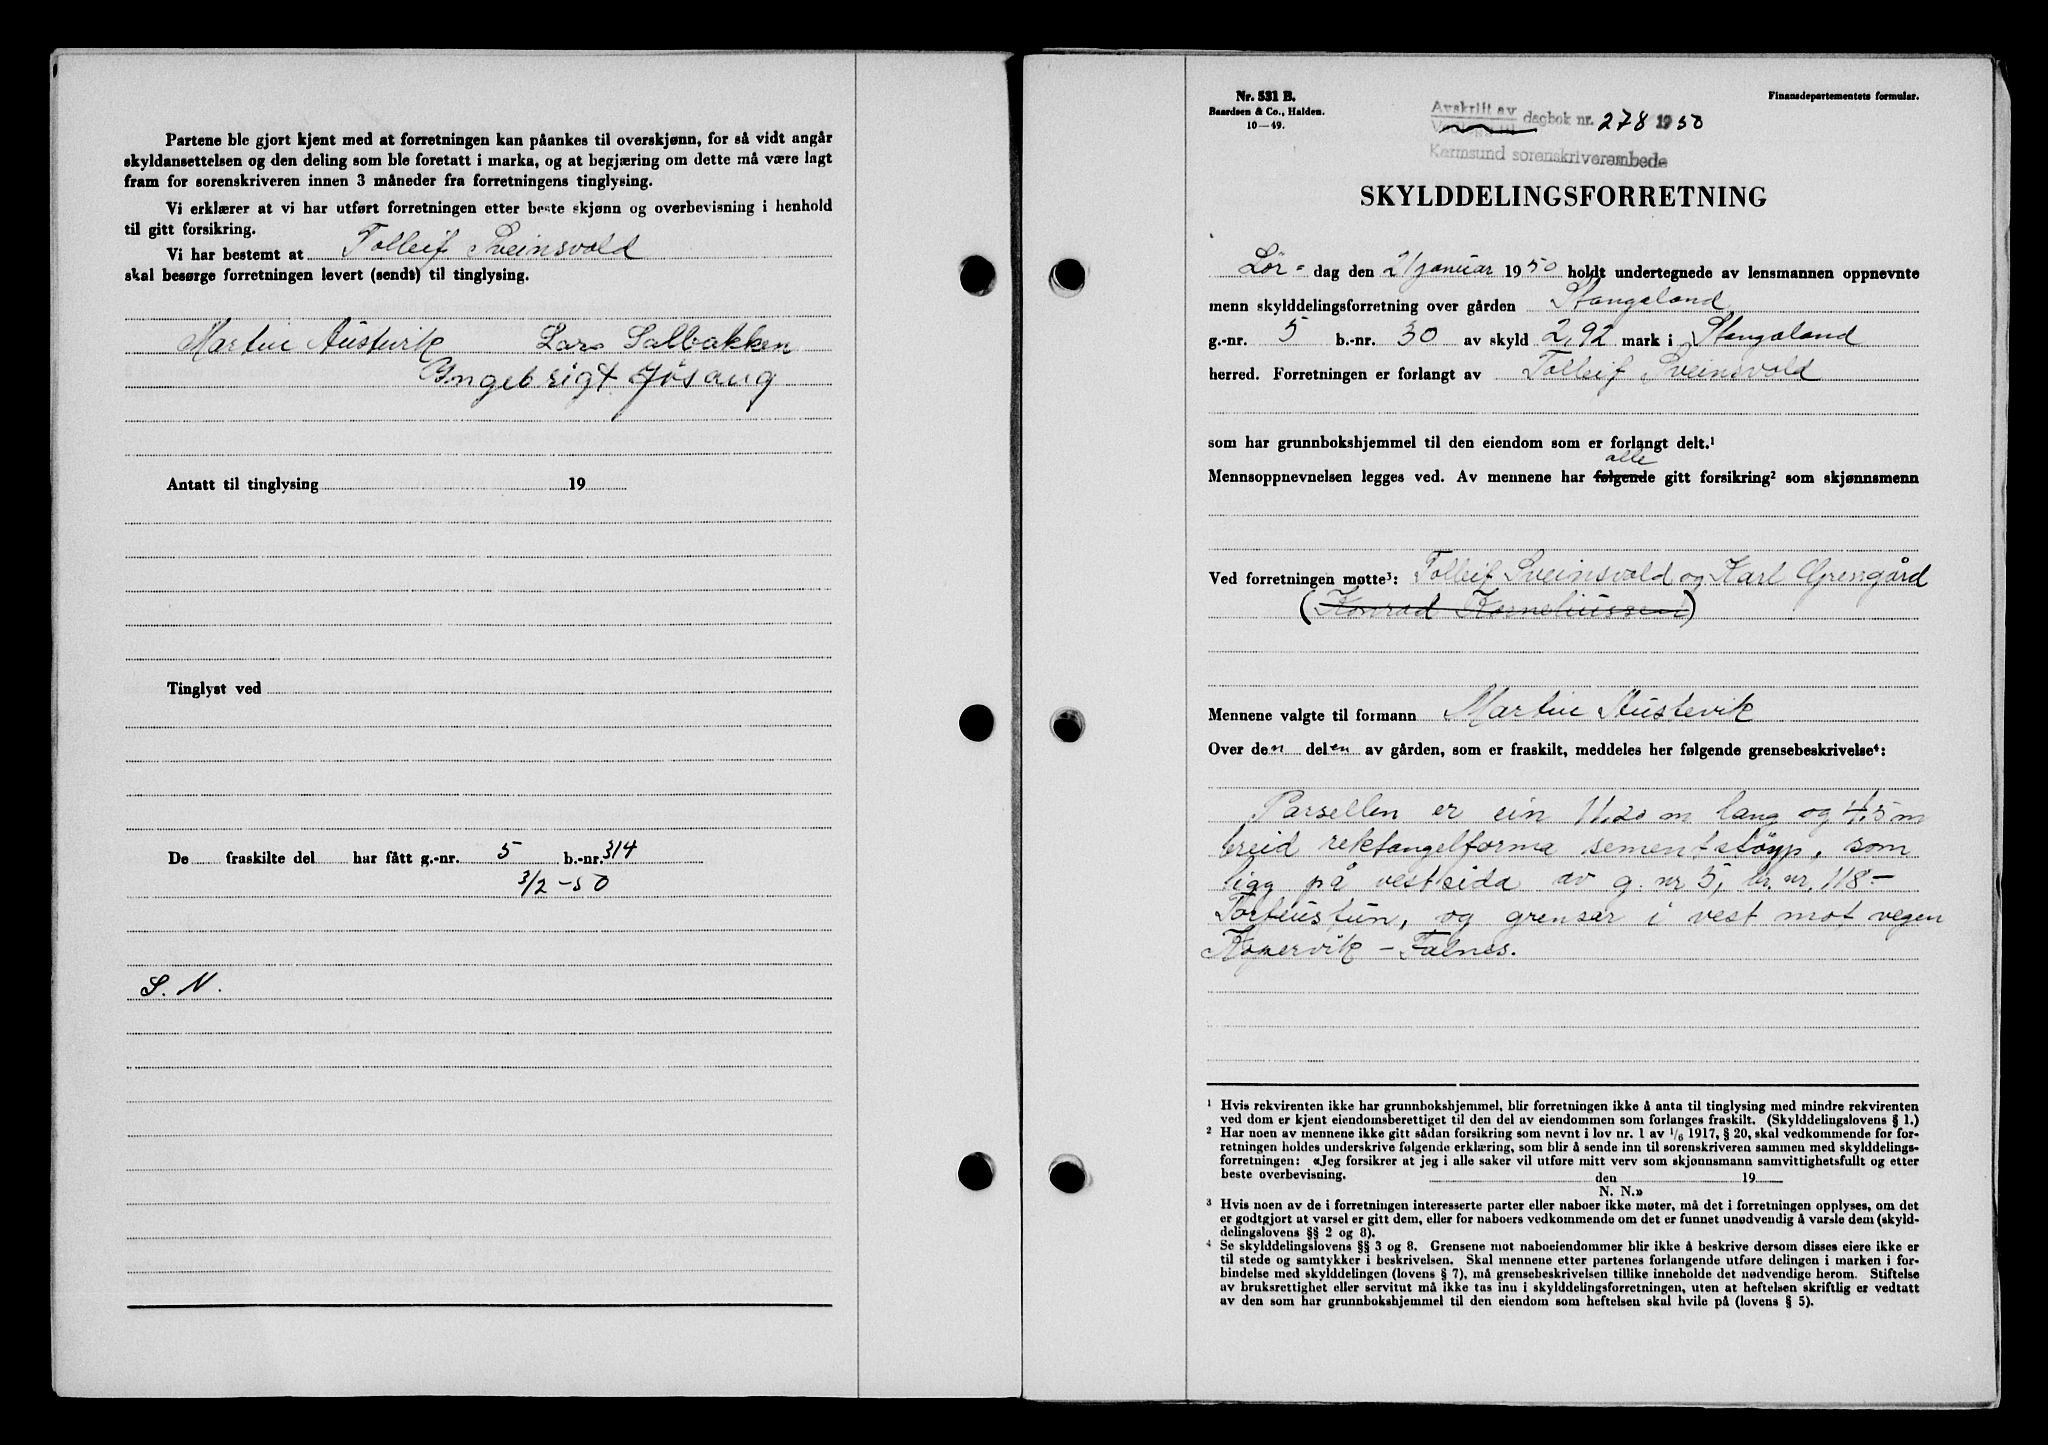 Partene ble gjort kjent med at forretningen kan påankes til overskjønn, for så vidt angår
skyldansettelsen og den deling som ble foretatt i marka, og at begjæring om dette må være lagt
fram for sorenskriveren innen 3 måneder fra forretningens tinglysing.
Vi erklærer at vi har utført forretningen etter beste skjønn og overbevisning i henhold
til gitt forsikring.
Vi har bestemt at Tolleif Sveinsvold
skal besørge forretningen levert (sendt) til tinglysing.
Martin Austevik Lars Salbakken
Yngebrigt Jøsang
Antatt til tinglysing 19
Tinglyst ved
De fraskilte del har fått g.-nr. 5 b.-nr. 314
3/2 - 50
S. N.
Nr. 531 B.
Baardsen & Co., Halden.
10—49.
Finansdepartementets formular.
Avskrift av
dagbok nr. 278 1950
Karmsund sorenskriverembede
SKYLDDELINGSFORRETNING
Lør- dag den 21 januar 1950 holdt undertegnede av lensmannen oppnevnte
menn skylddelingsforretning over gården Stangeland
g.-nr. 5 b.-nr. 30 av skyld 2,92 mark i Stangaland
herred. Forretningen er forlangt av Tolleif Sveinsvold
som har grunnbokshjemmel til den eiendom som er forlangt delt.¹
alle
Mennsoppnevnelsen legges ved. Av mennene har følgende gitt forsikring² som skjønnsmenn
Ved forretningen møtte³: Tolleif Sveinsvold og Karl Grengård
(Konrad Korneliussen)
Mennene valgte til formann Martin Austevik
Over den delen av gården, som er fraskilt, meddeles her følgende grensebeskrivelse⁴:
Parsellen er ein 11.20 m lang og 4,5 m
breid rektangelforma sementstøyp, som
ligg på vestsida av g. nr 5, br. nr. 118 -
og grensar i vest mot vegen
Kopervik - Falnes.
¹ Hvis rekvirenten ikke har grunnbokshjemmel, blir forretningen ikke å anta til tinglysing med mindre rekvirenten
ved dom er kjent eiendomsberettiget til den del av eiendommen som forlanges fraskilt. (Skylddelingslovens § 1.)
² Har noen av mennene ikke gitt sådan forsikring som nevnt i lov nr. 1 av 1/6 1917, § 20, skal vedkommende før for-
retningen holdes underskrive følgende erklæring, som blir å sende inn til sorenskriveren sammen med skylddelings-
forretningen: «Jeg forsikrer at jeg i alle saker vil utføre mitt verv som skjønnsmann samvittighetsfullt og etter
beste overbevisning. den 19
N. N.»
³ Hvis noen av de i forretningen interesserte parter eller naboer ikke møter, må det i forretningen opplyses, om det
er godtgjort at varsel er gitt dem, eller for naboers vedkommende om det er funnet unødvendig å varsle dem (skyld-
delingslovens §§ 2 og 8).
⁴ Se skylddelingslovens §§ 3 og 8. Grensene mot naboeiendommer blir ikke å beskrive dersom disses eiere ikke er
til stede og samtykker i beskrivelsen. Skal mennene etter partenes forlangende utføre delingen i marken i for-
bindelse med skylddelingen (lovens § 7), må grensebeskrivelsen tillike inneholde det nødvendige herom. Stiftelse
av bruksrettighet eller servitut må ikke tas inn i skylddelingsforretningen, uten at heftelsen skriftlig er vedtatt
av den som har grunnbokshjemmel til den eiendom som heftelsen skal hvile på (lovens § 5).